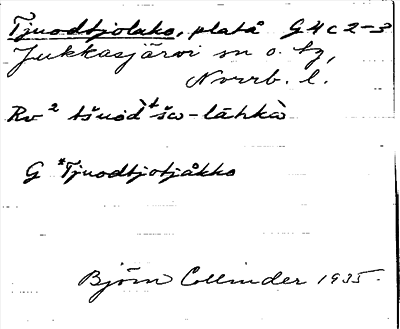 Tjuodtjolako, platå G4c2-3
Jukkasjärvi sn o. tg,
Norrb. l.
Rv² tšuoD̀ᵗšo-lāhkò
G *Tjuodtjotjåkko
Björn Collinder 1935.